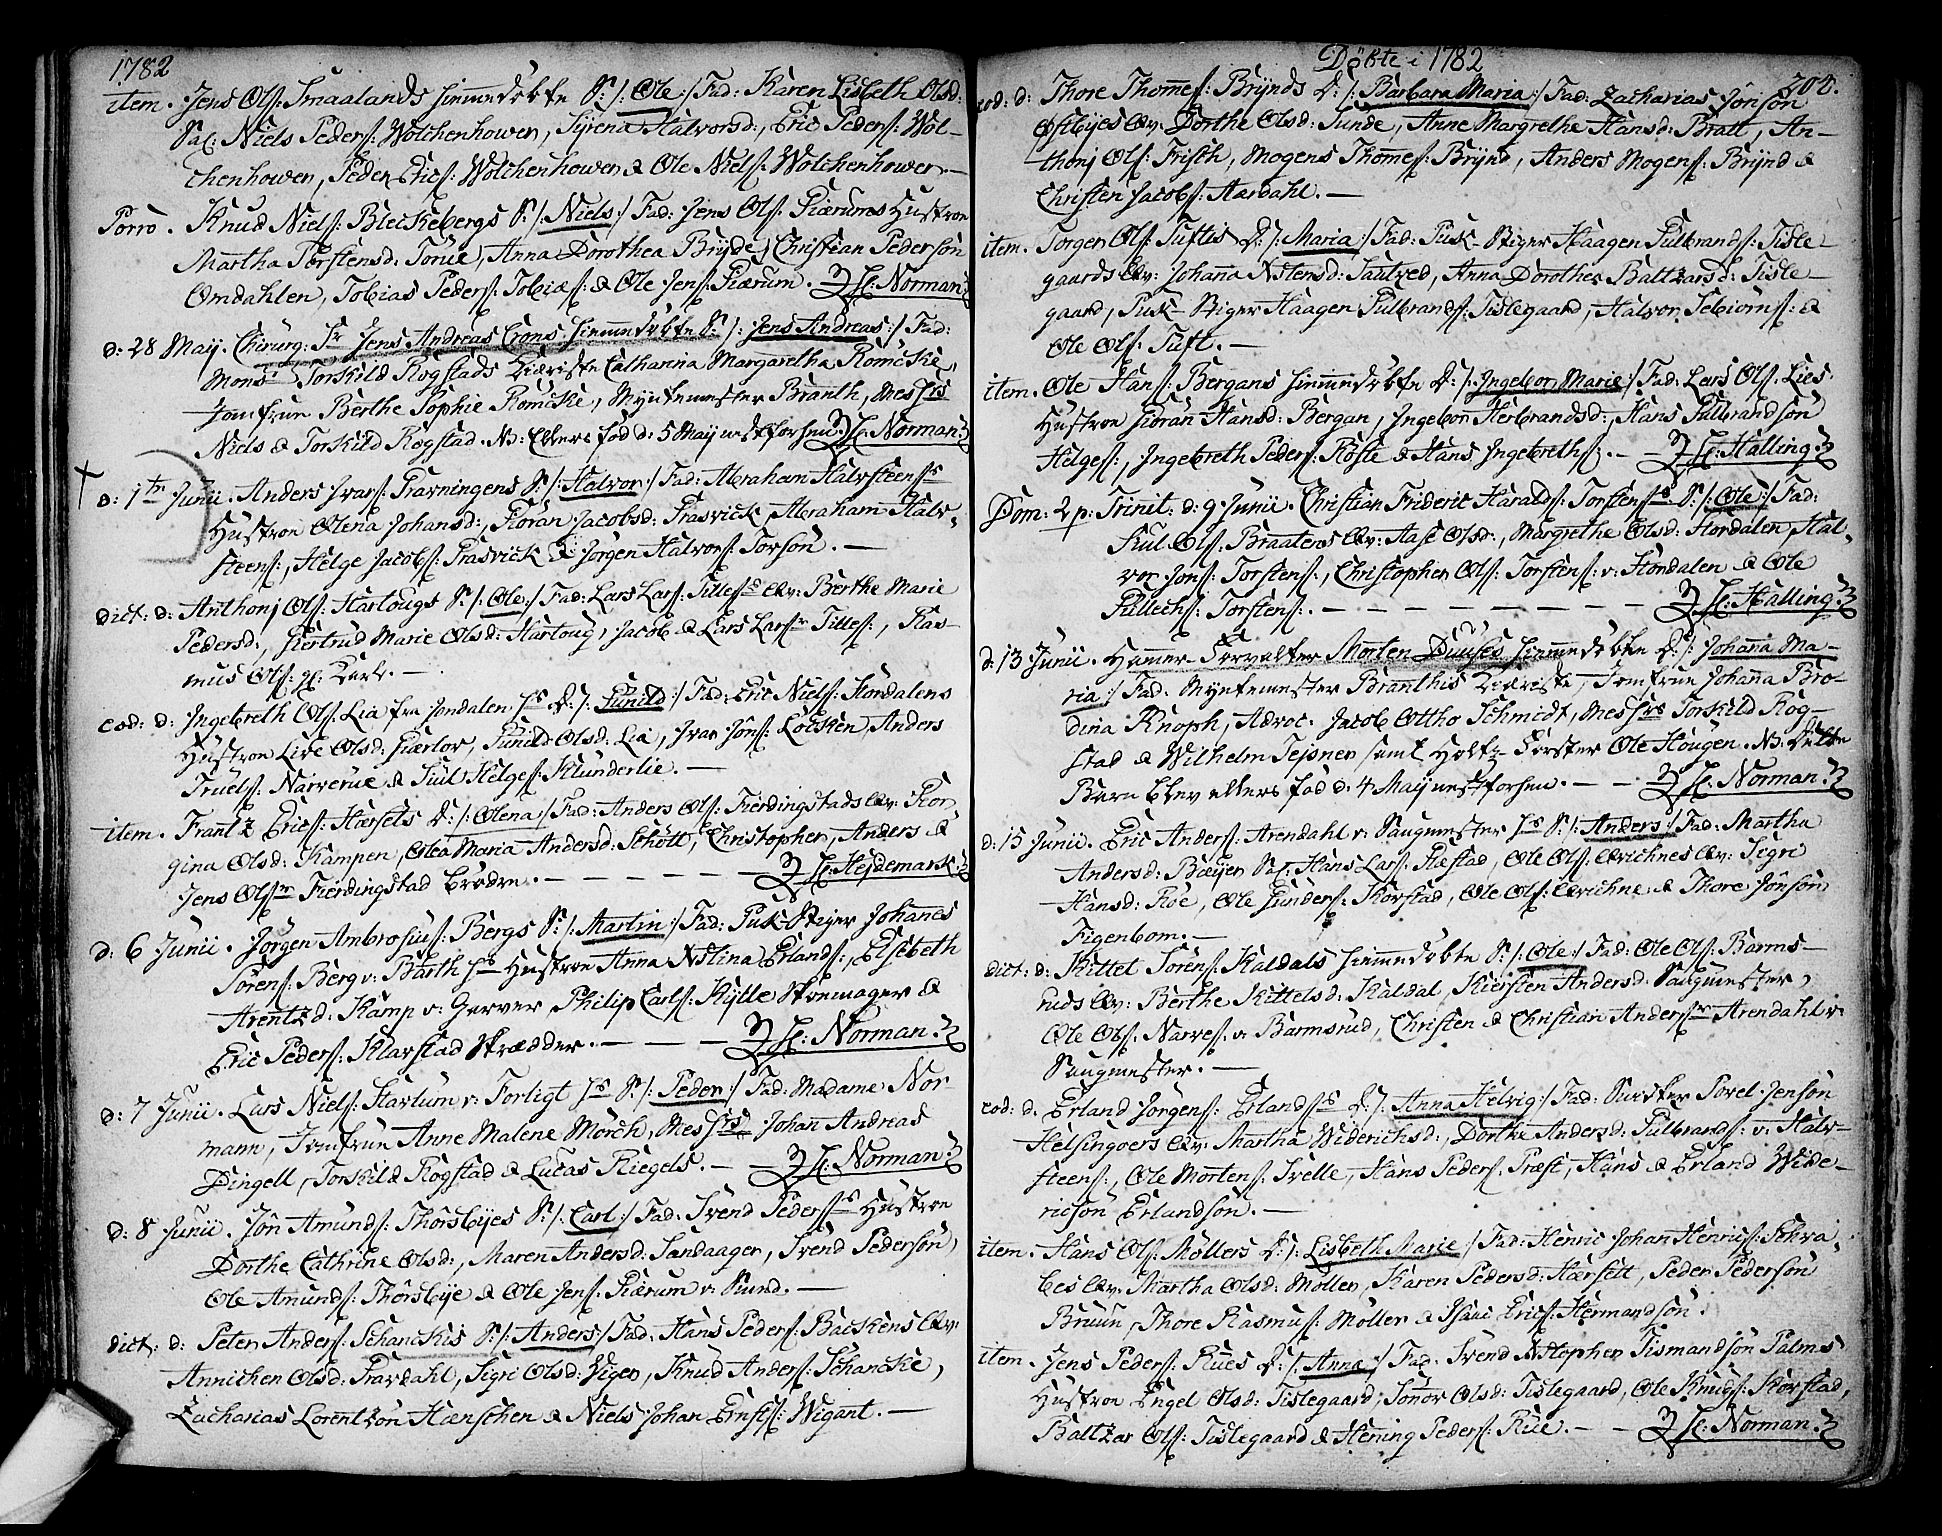 1782
item. Jens Ols: Smaalands hiemmedøbte S: /: Ole :/ Fad: Karen Lisbeth Olsd:
Sal: Niels Peders: Wolchenhower, Syrena Halvorsd:, Eric Peders: Wol-
chenhower, Peder Erics: Wolchenhower & Ole Niels: Wolchenhower. —
Porro. Knud Niels: Bleckebergs S: /: Niels :/ Fad: Jens Ols: Kiærums Hustroe
Martha Torstensd: Tonie, Anna Dorothea Bryde, Christian Pederson
Omdahlen, Tobias Peders: Tobiæs: & Ole Jens: Kiærum. H: Norman.
d: 28 May. Chirurg: Sr Jens Andreas Crons hiemmedøbte S: /: Jens Andreas :/ Fad:
Monsr Torskild Rogstads Kiæreste Catharina Margaretha Romcke,
Jomfrue Berthe Sophie Romcke, Myntemester Branth, Messrs
Niels & Torskild Rogstad. NB: Ellers fød d: 5 May nestforhen. H: Norman.
d: 1te Junii. Anders Ivars: Gravningens S: /: Halvor :/ Fad: Abraham Halvsteens:s
Hustroe Olena Johansd:, Giøran Jacobsd: Grasvick, Abraham Halv-
steens:, Helge Jacobs: Grasvick & Jørgen Halvors: Torson. —
dict: d: Anthonj Ols: Hartougs S: /: Ole :/ Fad: Lars Lars: Tilles:s Qv: Berthe Marie
Pedersd:, Giertrud Marie Olsd: Hartoug, Jacob & Lars Lars:r Tilles:, Ras-
mus Ols:
eod: d: Ingebreth Ols: Lia fra Jondalen hs D: /: Gunild :/ Fad: Eric Niels: Jondalens
Hustroe Live Olsd: Giærlov, Gunild Olsd: Lia, Ivar Jøns: Løcken, Anders
Truels: Narverue & Juul Helges: Klunderlie. —
item. Frantz Erics: Hørsets D: /: Olena :/ Fad: Anders Ols: Fierdingstads Qv: Gor-
gina Olsd: Kampen, Olea Maria Andersd: Schøtt, Christopher, Anders &
Jens Ols:r Fierdingstad Brødre. — H: Hejdemark.
d: 6 Junii. Jørgen Ambrosius: Bergs S: /: Martin :/ Fad: Puk-Stiger Johanes
Sørens: Berg v: Barth hs Hustroe Anna Nstina Erlands:, Elsebeth
Arentzd: Kamp v: Garver, Philip Carls: Kylle Skoemager &
Eric Peders: Klarstad Skrædder. — H: Norman.
d: 7 Junii. Lars Niels: Harlum v: Forligt hs S: /: Peder :/ Fad: Madame Nor-
mann, Jomfrue Anne Malene Morch, Messrs Johan Andreas
Dingell, Torskild Rogstad & Lucas Riegels. — H: Norman.
d: 8 Junii. Jôn Amunds: Thorsbyes S: /: Carl :/ Fad: Svend Peders:s Hustroe
Dorthe Cathrine Olsd:, Maren Andersd: Sandaager, Svend Pederson,
Ole Amunds: Thorsbye & Ole Jens: Kiærum v: Sund. —
dict: d: Peter Anders: Schanckis S: /: Anders :/ Fad: Hans Peders: Backens Qv:
Annichen Olsd: Gravdahl, Sigri Olsd: Viger, Knud Anders: Schancke,
Zacharias Lorentzon Hænschen & Niels Johan Ernst: Wigant. —
Døbte i 1782
204.
eod: d: Thore Thomes: Brynds D: /: Barbara Maria :/ Fad: Zacharias Jonson
Østbyes Qv: Dorthe Olsd: Sunde, Anne Margrethe Hansd: Bratt, An-
thonj Ols: Frisch, Mogens Thomes: Brynd, Anders Mogens: Brynd &
Christen Jacobs: Aardahl. —
item. Torger Ols: Tuftes D: /: Maria :/ Fad: Puk-Stiger Haagen Gulbrands: Tisle-
gaards Qv: Johana Nstensd: Sautved, Anna Dorothea Baltzarsd: Tisle-
gaard, Puk-Stiger Haagen Gulbrands: Tislegaard, Halvor Sebiorns: &
Ole Ols: Tuft. —
item. Ole Hans: Bergans hiemmedøbte D: /: Ingebor Marie :/ Fad: Lars Ols: Lies
Hustroe Giøran Hansd: Bergan, Ingebor Herbrandsd:, Hans Gulbrandson
Helges:, Ingebreth Peders: Røste & Hans Ingebreths:. — H: Halling.
Dom: 2 p: Trinit: d: 9 Junii. Christian Frideric Haralds: Torstens:s S: /: Ole :/ Fad:
Juul Ols: Braatens Qv: Aase Olsd:, Margrethe Olsd: Hordalen, Hal-
vor Jons: Torstens:, Christopher Ols: Torstens: v: Hordalen & Ole
Gullechs: Torstens:. — H: Halling.
d: 13 Junii. Hammer-Forvalter Morten Duuses hiemmedøbte D: /: Johana Ma-
ria :/ Fad: Myntemester Branthis Kiæreste, Jomfrue Johana Bro-
dina Knoph, Advoc: Jacob Ottho Schmidt, Messrs Torskild Rog-
stad & Wilhelm Tejsner samt Holtz-Førster Ole Hougen. NB: Dette
Barn blev ellers fød d: 4 May nestforhen. — H: Norman.
d: 15 Junii. Eric Anders: Arendahl v: Saugmester hs S: /: Anders :/ Fad: Martha
Andersd: Bæyer Sal: Hans Lars: Fiestad, Ole Ols: Qvichnes Qv: Sigri
Hansd: Roe, Ole Gunders: Korstad, Ole Ols: Qvichne & Thore Jônson
Figenbom. —
dict: d: Kittel Sørens: Kaldals hiemmedøbte S: /: Ole :/ Fad: Ole Ols: Barms-
ruds Qv: Berthe Kittelsd: Kaldal, Kiersten Andersd: Saugmester,
Ole Ols: Narves: v: Barmsrud, Christen & Christian Anders:r Arendahl v:
Saugmester. —
eod: d: Erland Jørgens: Erlands:s D: /: Anna Helvig :/ Fad: Povel Jenson
Helsingoers Qv: Martha Widerichsd:, Dorthe Andersd: Gulbrands: v: Halv-
steens:, Ole Mortens: Tvelle, Hans Peders: Præst, Hans & Erland Wide-
ricson Erlandson. —
item. Hans Ols: Møllers D: /: Lisbeth Marie :/ Fad: Henric Johan Henrics: Schva-
bes Qv: Martha Olsd: Møller, Karen Pedersd: Hærsett, Peder Pederson
Bruun, Thore Rasmus: Møller & Isaac Erics: Hermandson.
item. Jens Peders: Rues D: /: Anna :/ Fad: Svend Nstopher Tismandson Palms
Hustroe Engel Olsd: Tislegaard, Sonor Olsd: Tislegaard, Ole Knuds: Korstad,
Baltzar Ols: Tislegaard & Hening Peders: Rue. — H: Norman.